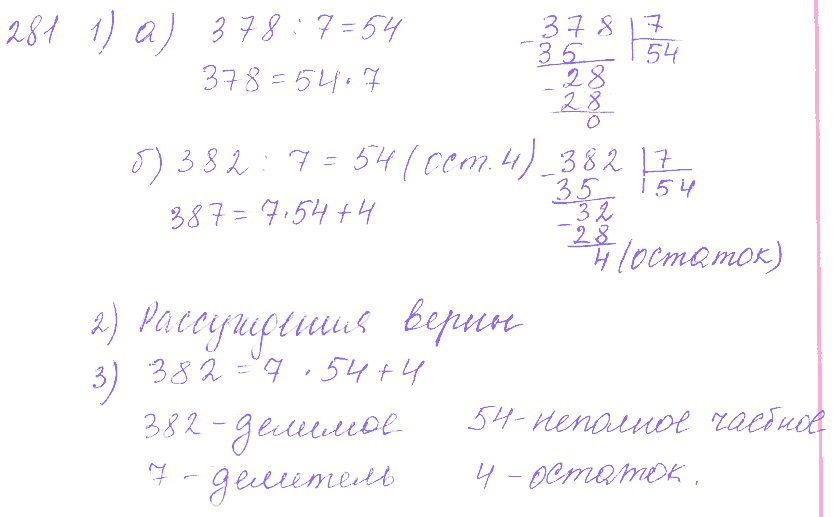 281 1) а) 378 : 7 = 54
378 = 54 · 7
- 378 | 7
35 | 54
- 28
28
0
б) 382 : 7 = 54 (ост. 4)
387 = 7 · 54 + 4
- 382 | 7
35 | 54
- 32
28
4 (остаток)
2) Рассуждения верны
3) 382 = 7 · 54 + 4
382 - делимое 54 - неполное частное
7 - делитель 4 - остаток.